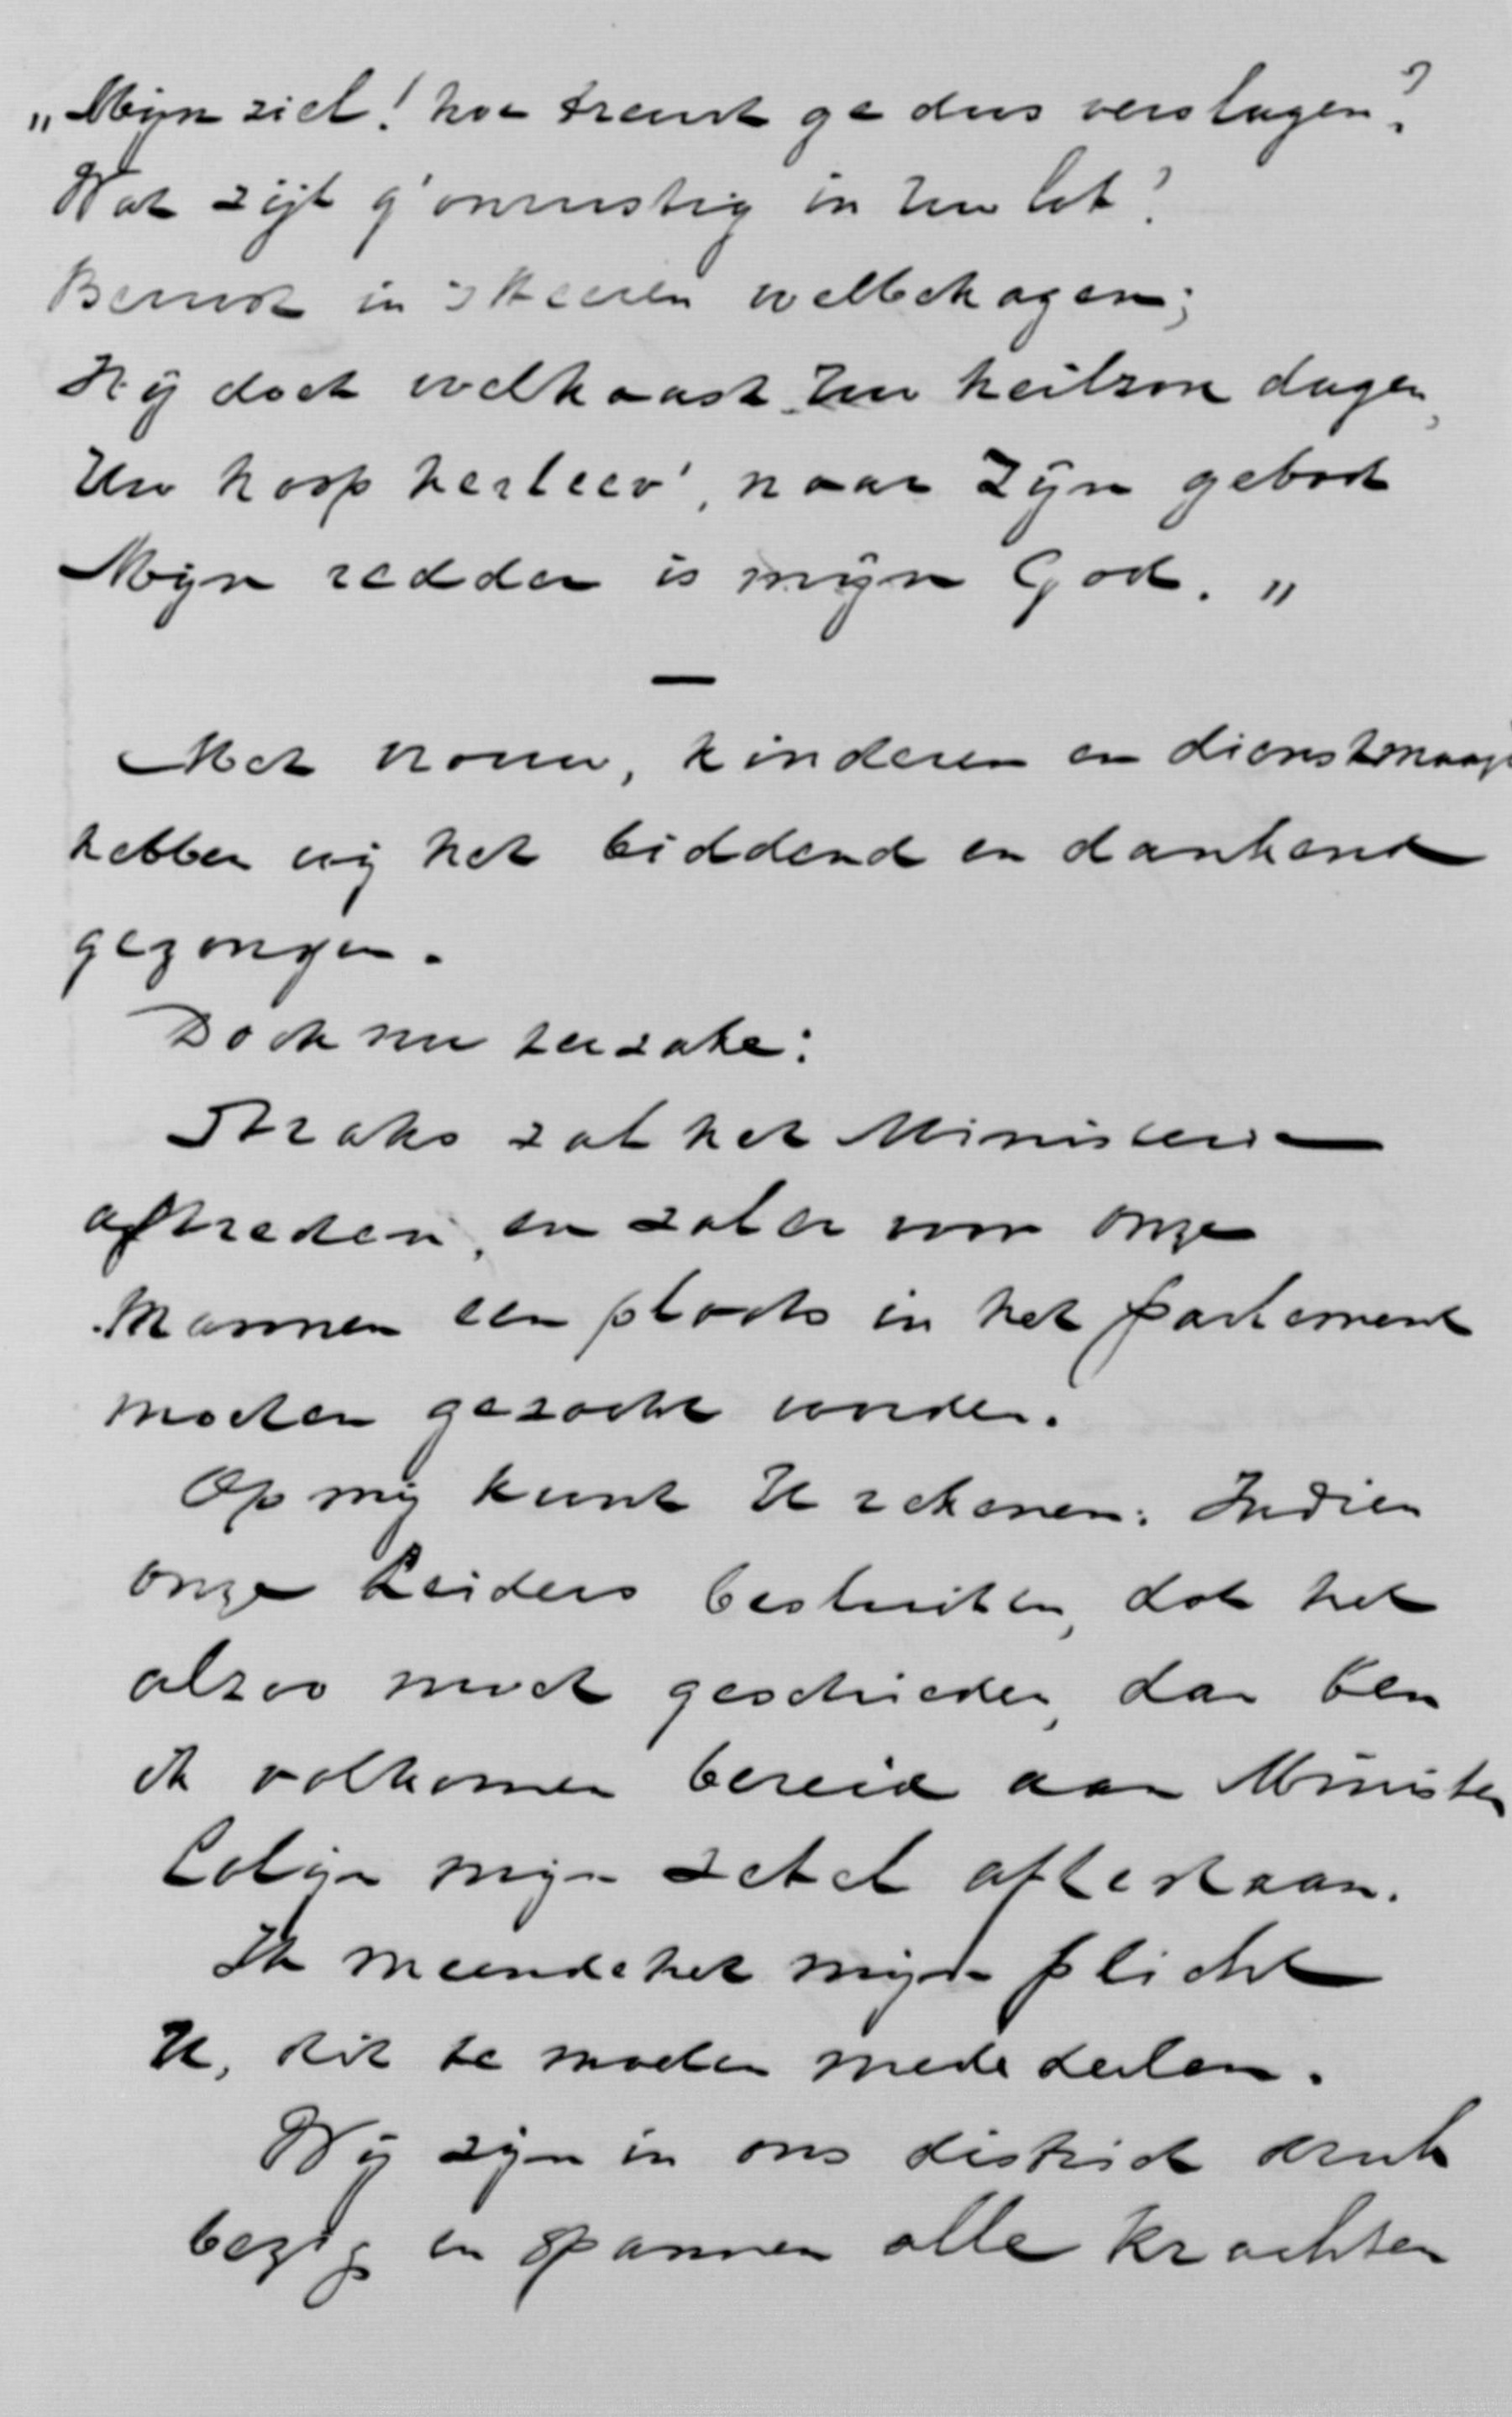 „Mijn ziel! hoe treurt ge dus verslagen?
Wat zijt g'onrustig in Uw lot?
Berust in 's Heeren welbehagen;
Hij doet welhaast Uw heilzon dagen,
Uw hoop herleev', naar Zijn gebod
Mijn redder is mijn God. „
—
Met vrouw, kinderen en dienstmaagd
hebben wij het biddend en dankend
gezongen.
Doch nu ter zake:
Straks zal het Ministerie
aftreden, en zal er voor onze
Mannen een plaats in het parlement
moeten gezocht worden.
Op mij kunt U rekenen. Indien
onze Leiders besluiten, dat het
alzoo moet geschieden, dan ben
ik volkomen bereid aan Minister
Colijn mijn zetel aftestaan.
Ik meende het mijn plicht
U, dit te moeten mededeelen.
Wij zijn in ons district druk
bezig en spannen alle krachten